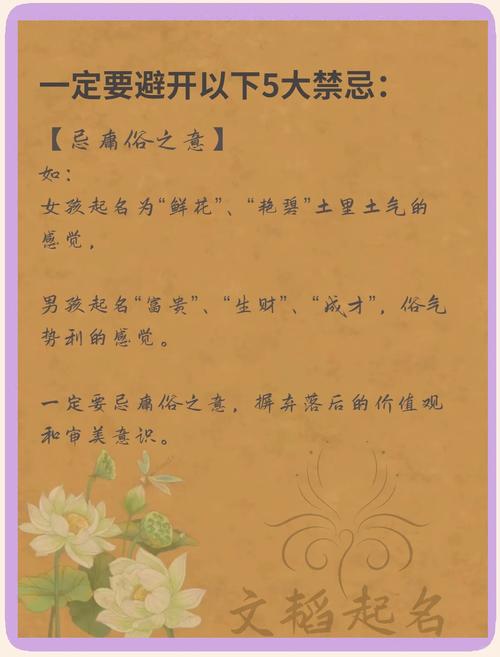 一定要避开以下5大禁忌：
【忌庸俗之意】
如：
女孩起名为“鲜花”、“艳碧”土里土气的
感觉，
男孩起名“富贵”、“生财”、“成才”，俗气
势利的感觉。
一定要忌庸俗之意，摒弃落后的价值观
和审美意识。
文韬起名